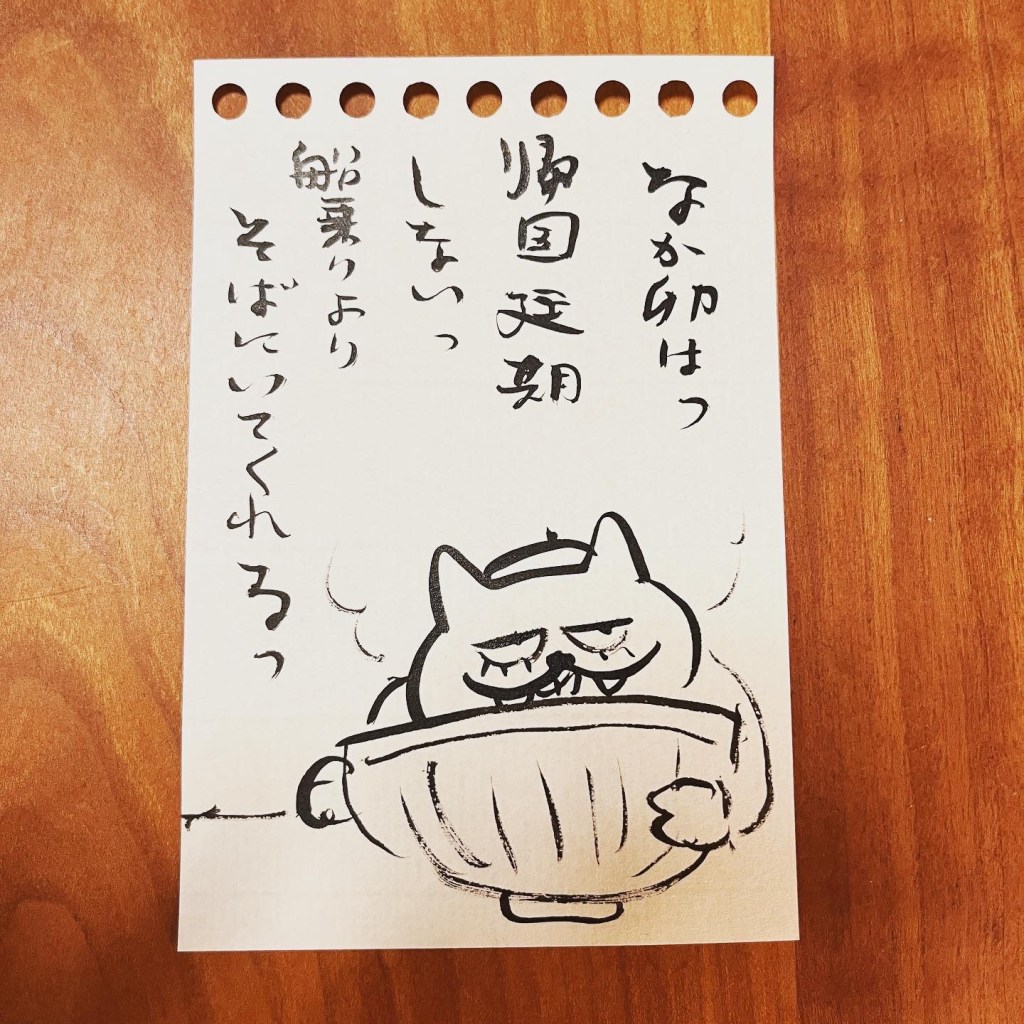 なか卯はっ
帰国延期
しないっ
船乗りより
そばにいてくれるっ